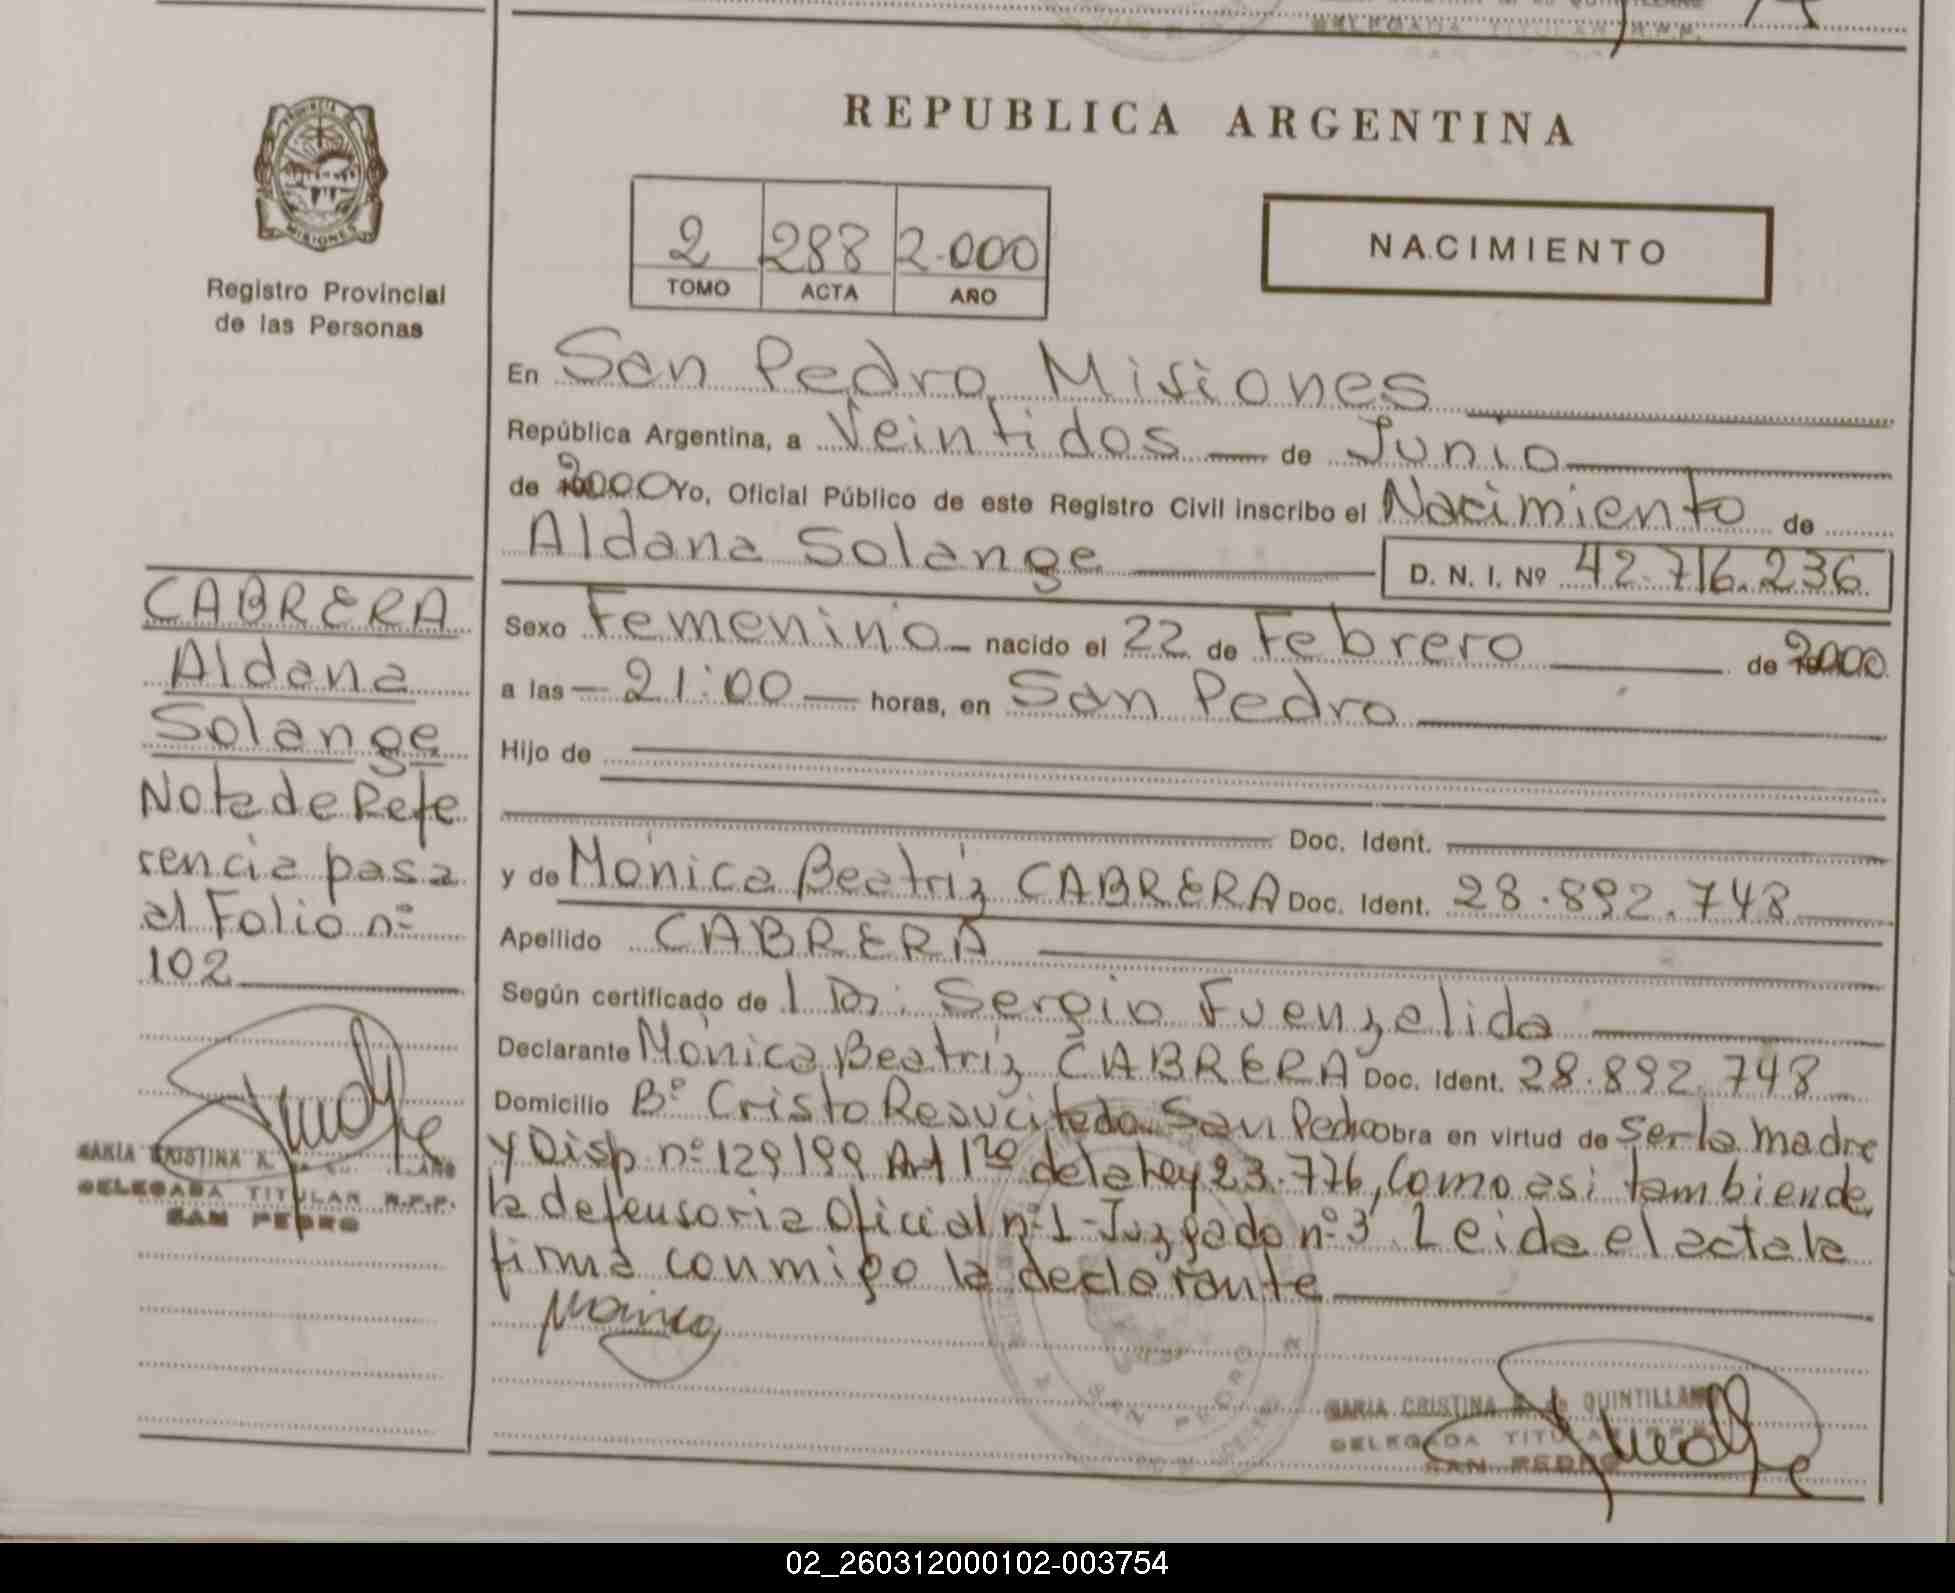 DELEGADA TITULAR R.P.P.
PROVINCIA
MISIONES
Registro Provincial
de las Personas
REPUBLICA ARGENTINA
2 288 2.000
TOMO ACTA AÑO
NACIMIENTO
En San Pedro, Misiones
República Argentina, a Veintidos de Junio
de 2000 Yo, Oficial Público de este Registro Civil inscribo el Nacimiento de
Aldana Solange D. N. I. Nº 42.716.236
Sexo Femenino nacido el 22 de Febrero de 2000
a las 21:00 horas, en San Pedro
Hijo de
Doc. Ident.
y de Mónica Beatriz CABRERA Doc. Ident. 28.892.748
Apellido CABRERA
Según certificado de Dr. Sergio Fuenzalida
Declarante Mónica Beatriz CABRERA Doc. Ident. 28.892.748
Domicilio Bº Cristo Resucitado San Pedro obra en virtud de ser la madre
y Disp. nº 129/99 Art 1º de la Ley 23.776, Como asi tambien de
la defensoria Oficial nº 1 - Juzgado nº 3. Leida el acta la
firma conmigo la declarante
Monica
SAN PEDRO
MARIA CRISTINA R. de QUINTILLAN
DELEGADA TITULAR R.P.P.
SAN PEDRO
CABRERA
Aldana
Solange
Nota de Refe
rencia pasa
al Folio nº
102
MARIA CRISTINA R.
DELEGADA TITULAR R.P.P.
SAN PEDRO
02_260312000102-003754